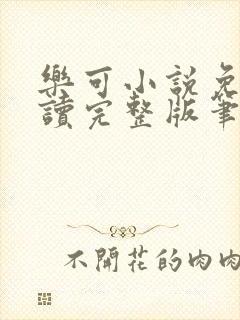 樂可小說免
讀完整版筆
不開花的肉肉